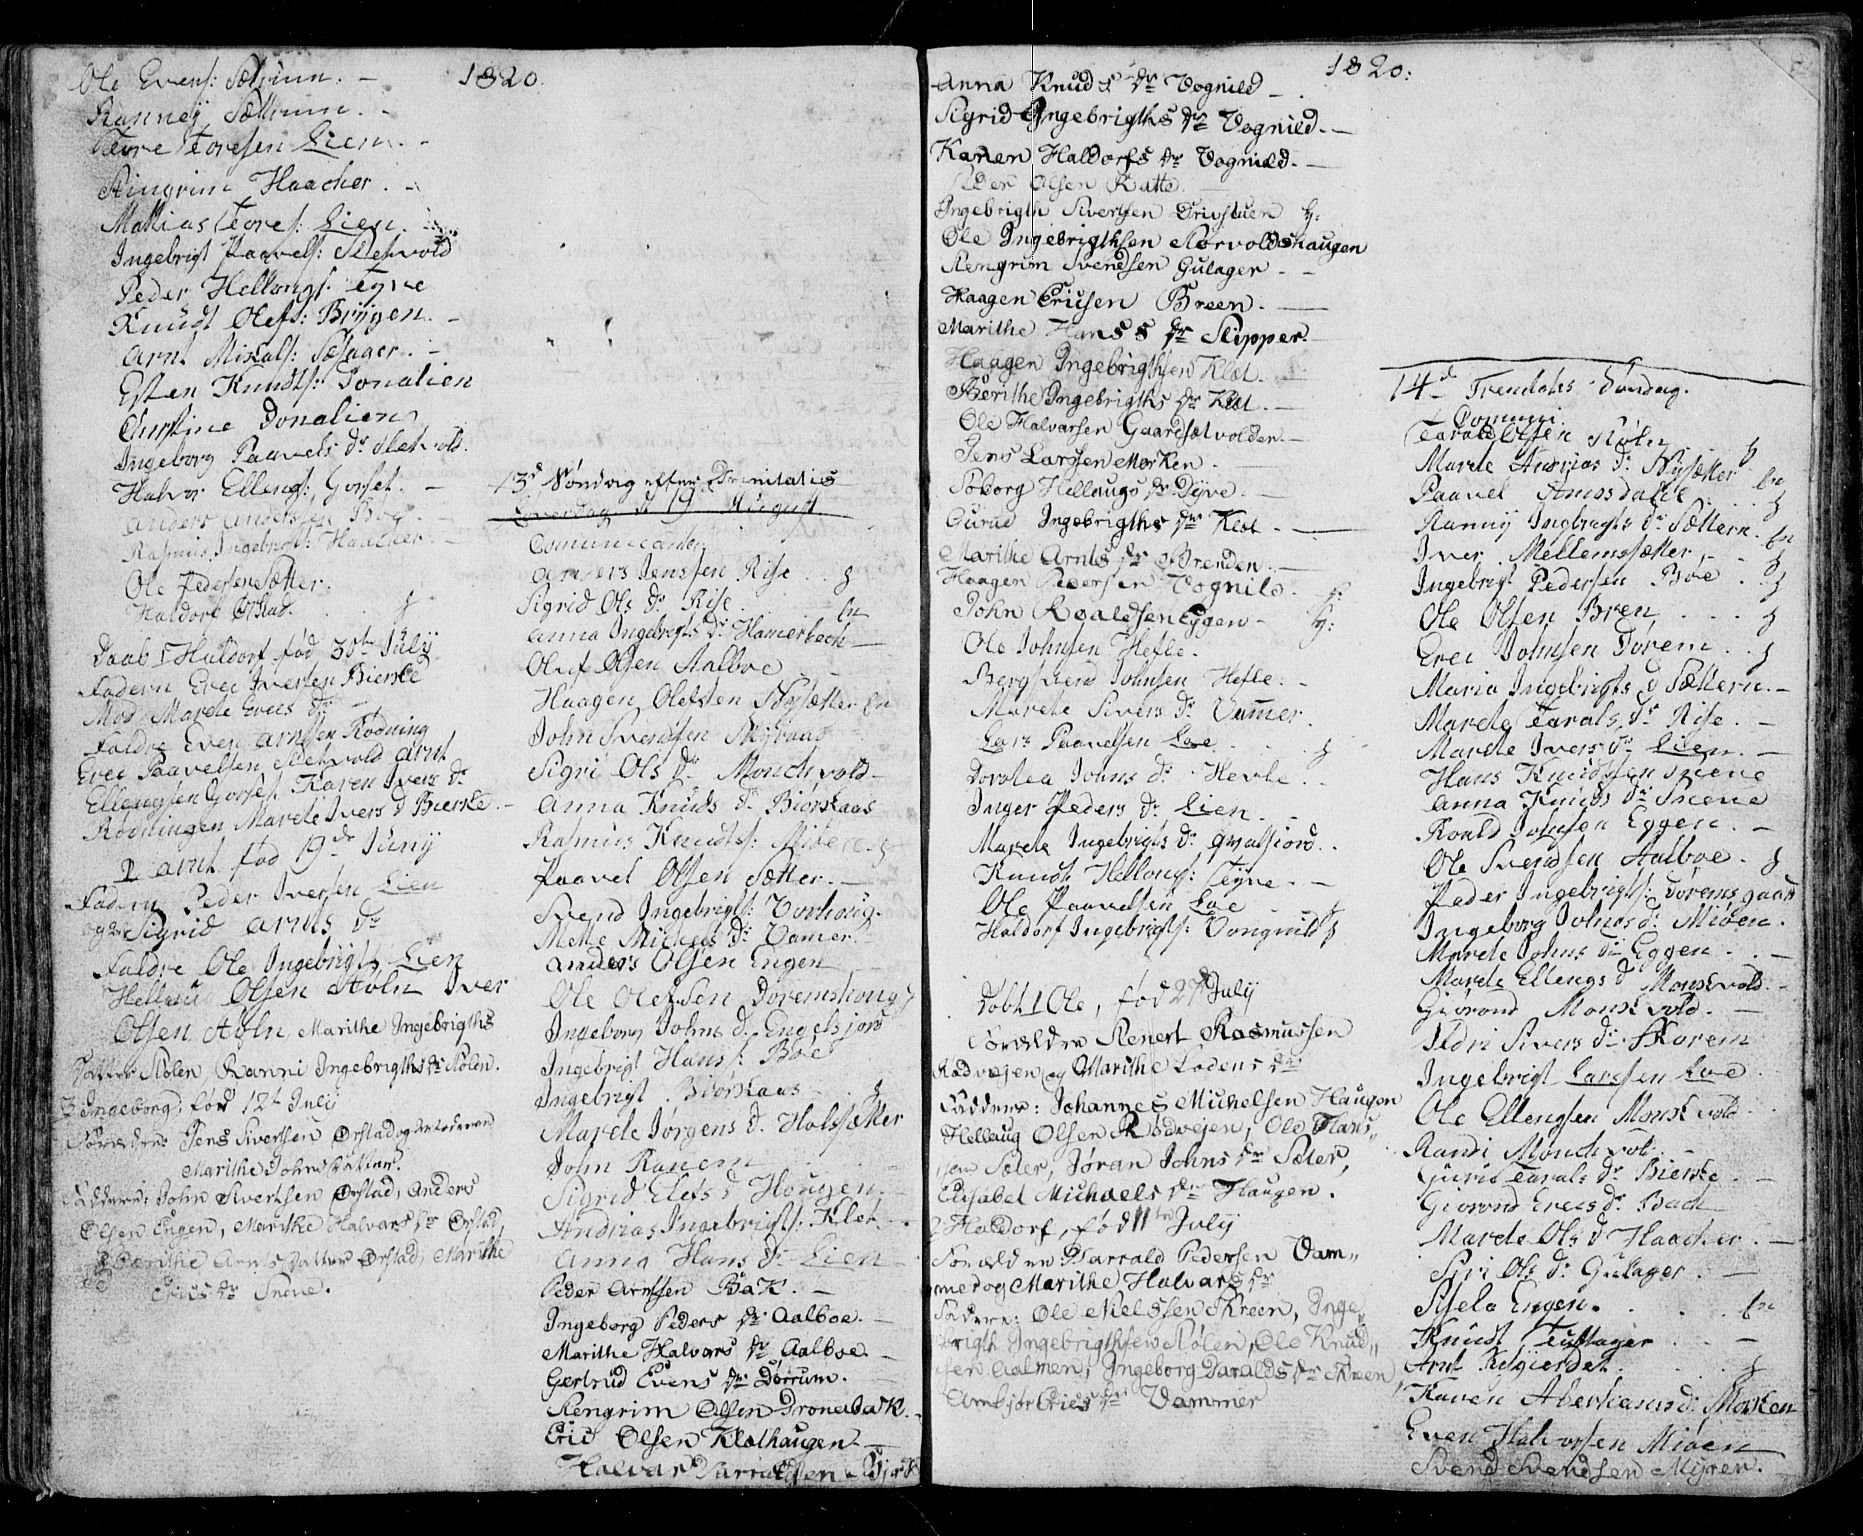 1820.
Ole Evens: Sætrum. -
Ranney Sættrum. -
Tore Toresen Lien. -
Stingrim Haacker. -
Mathias Tores: Lien.
Ingebrigt Paavels: Sletvold
Peder Hellongs: Tyve
Knudt Olefs: Brygen. -
Arnt Mikals: Sæsager. -
Esten Knudts: Donalien
Christine Donalien
Ingeborg Paavels dr Sletvold.
Halvor Ellengs: Gorset. -
Anders Andersen Bog. -
Rasmus Ingebrigts: Haacker. -
Ole Pedersen Sætter.
Haldorf Ørstad.
Daab 1 Haldorf fød 30te July
Fadern Erec Iversen Bierske
Mod: Marete Erecs dr -
Faddre Even Arntsen Rødning
Erec Paavelsen Sletvold Arnt
Ellengsen Gorset Karen Ivers dr
Rødningen Marete Ivers d Bierske. -
2 Arnt fød 19de Juny
Fadern Peder Iversen Lien
Sigrid Arnts dr
Faddre Ole Ingebrigts Lien
Hellaug Olsen Støln Iver
Olsen Støln Marithe Ingebrigths
Datter Stølen, Ranni Ingebrigths dr Stølen.
3 Ingeborg, fød 12te July
Forældre: Jens Sivertsen Ørstad og
Marithe Johns Datter.
Faddere: John Sivertsen Ørstad, Anders
Olsen Engen, Marithe Halvars dr Ørstad,
Berithe Arnts Datter Ørstad, Marithe
Erics dr Snove.
13d Søndag efter Trinitatis
Løverdag d 19 August
Comunicanter
Anders Jensen Rise . . g
Sigrid Ols dr Rise. fn
Anna Ingebrigts dr Hamerbach
Oluf Olsen Aalboe
Haagen Olefsen Nysætter fn
John Svendsen Myraas
Sigri Ols dr Monchvold
Anna Knuds dr Biørskaas
Rasmus Knudts: Miøen g
Paavel Olsen Sætter. -
Svend Ingebrigts: Vorhoug.
Mette Mickels dr Vamer. -
Anders Olsen Engen
Ole Olefsen Doremshoug
Ingeborg Johns dr Engelsjord
Ingebrigt Hans: Boe
Ingebrigt Biørskaas. g
Marete Jørgens d. Holsætter
John Ranem
Sigrid Elefs d Hougen.
Andrias Ingebrigts: Klet. -
Anna Hans dr Lien
Peder Arntsen Bak. -
Ingeborg Peders dr Aalboe. -
Marithe Halvars dr Aalboe. -
Gertrud Evens dr Dørrum. -
Stengrim Olsen Dronebak. -
Eric Olsen Klethaugen -
Halvar Tarraldsen
1820:
Anna Knuds dr Vognild -
Sigrid Ingebrigths dr Vognild. -
Karen Haldorfs dr Vognild. -
Peder Olsen Ratte.
Ingebrigth Sivertsen Drivstuen g:
Ole Ingebrigthsen Storvoldshaugen
Stengrim Svendsen Gulager - -
Haagen Ericsen Breen. -
Marithe Hans s dr Slipper. -
Haagen Ingebrigthsen Klet. -
Berithe Ingebrigths dr Klet. -
Ole Halvarsen Gaardsætvolden. -
Jens Larssen Morken. -
Soborg Hellaugs dr Dyve. -
Guruo Ingebrigths dr Klet -
Marithe Arnts dr Brenden. -
Haagen Pedersen Vognild. g:
John Roaldsen Eggen - g:
Ole Johnsen Hefle. -
Bergsvend Johnsen Hefle. -
Marete Sivers dr Vammer.
Lars Paavelsen Loe . . . g
Dorotea Johns dr Hevle. .
Inger Peders dr Lien. -
Marete Ingebrigts dr Gravlsiord. .
Knudt Hellongs: Tyve. -
Ole Paavelsen Loe
Haldorf Ingebrigts: Vongnild g
Døbt 1 Ole, fød 27de July
Forældre Renert Rasmussen
Rødvejen og Marithe Lodens dr
Faddere: Johannes Michelsen Haugen
Hellaug Olsen Rødvejen, Ole Hans,,
sen Sæter, Jøran Johns dr Sæter,
Elisabet Michaels dr Haugen.
2 Haldorf, fød 11te July
Forældre Harrald Pedersen Vam,,
mer og Marithe Halvars dr
Faddere: Ole Nielssen Skreen, Inge,,
brigth Ingebrigthsen Stølen, Ole Knud,,
sen Aalmen, Ingeborg Daralds dr Skreen,
Ambjør Erics dr Vammer
14d Trenitatis Søndag.
Tarald Olsen Støln . . g
Marete Andrias dr Nysætter fn
Paavel Amosdalie . . g
Ranny Ingebrigts dr Sættern. fn
Iver Mellemsætter. - g
Ingebrigt Pedersen Boe . . g
Ole Olsen Bren . . . g
Erec Johnsen Dørem . . g
Maria Ingebrigts d Sættern. -
Marete Taralds dr Rise. -
Marete Ivers dr Lien. -
Hans Knudtsen Sneve
Anna Knuds dr Sneve
Roald Johnsen Eggen. -
Ole Svendsen Aalboe. g
Peder Ingebrigts: Doremsgaard
Ingeborg Johns dr Miøen.
Marete Johns dr Eggen. . -
Marete Ellengs d Monskvold. -
Giørond Monskvold. -
Ildri Sivers dr Skorem
Ingebrigt Larssen Loe
Ole Ellengsen Monskvold
Randi Monchvold. -
Guruo Taralds dr Bierske. -
Giørond Erecs dr Bach
Marete Ols d Haacker. -
Siri Ols dr Gulager. -
Sisela Engen. . . . fn
Knudt Tuftager -
Arnt Kelgierdet. . . g
Karen Abrahams d: Morken
Even Halvorsen Miøen
Svend Svendsen Myren. -